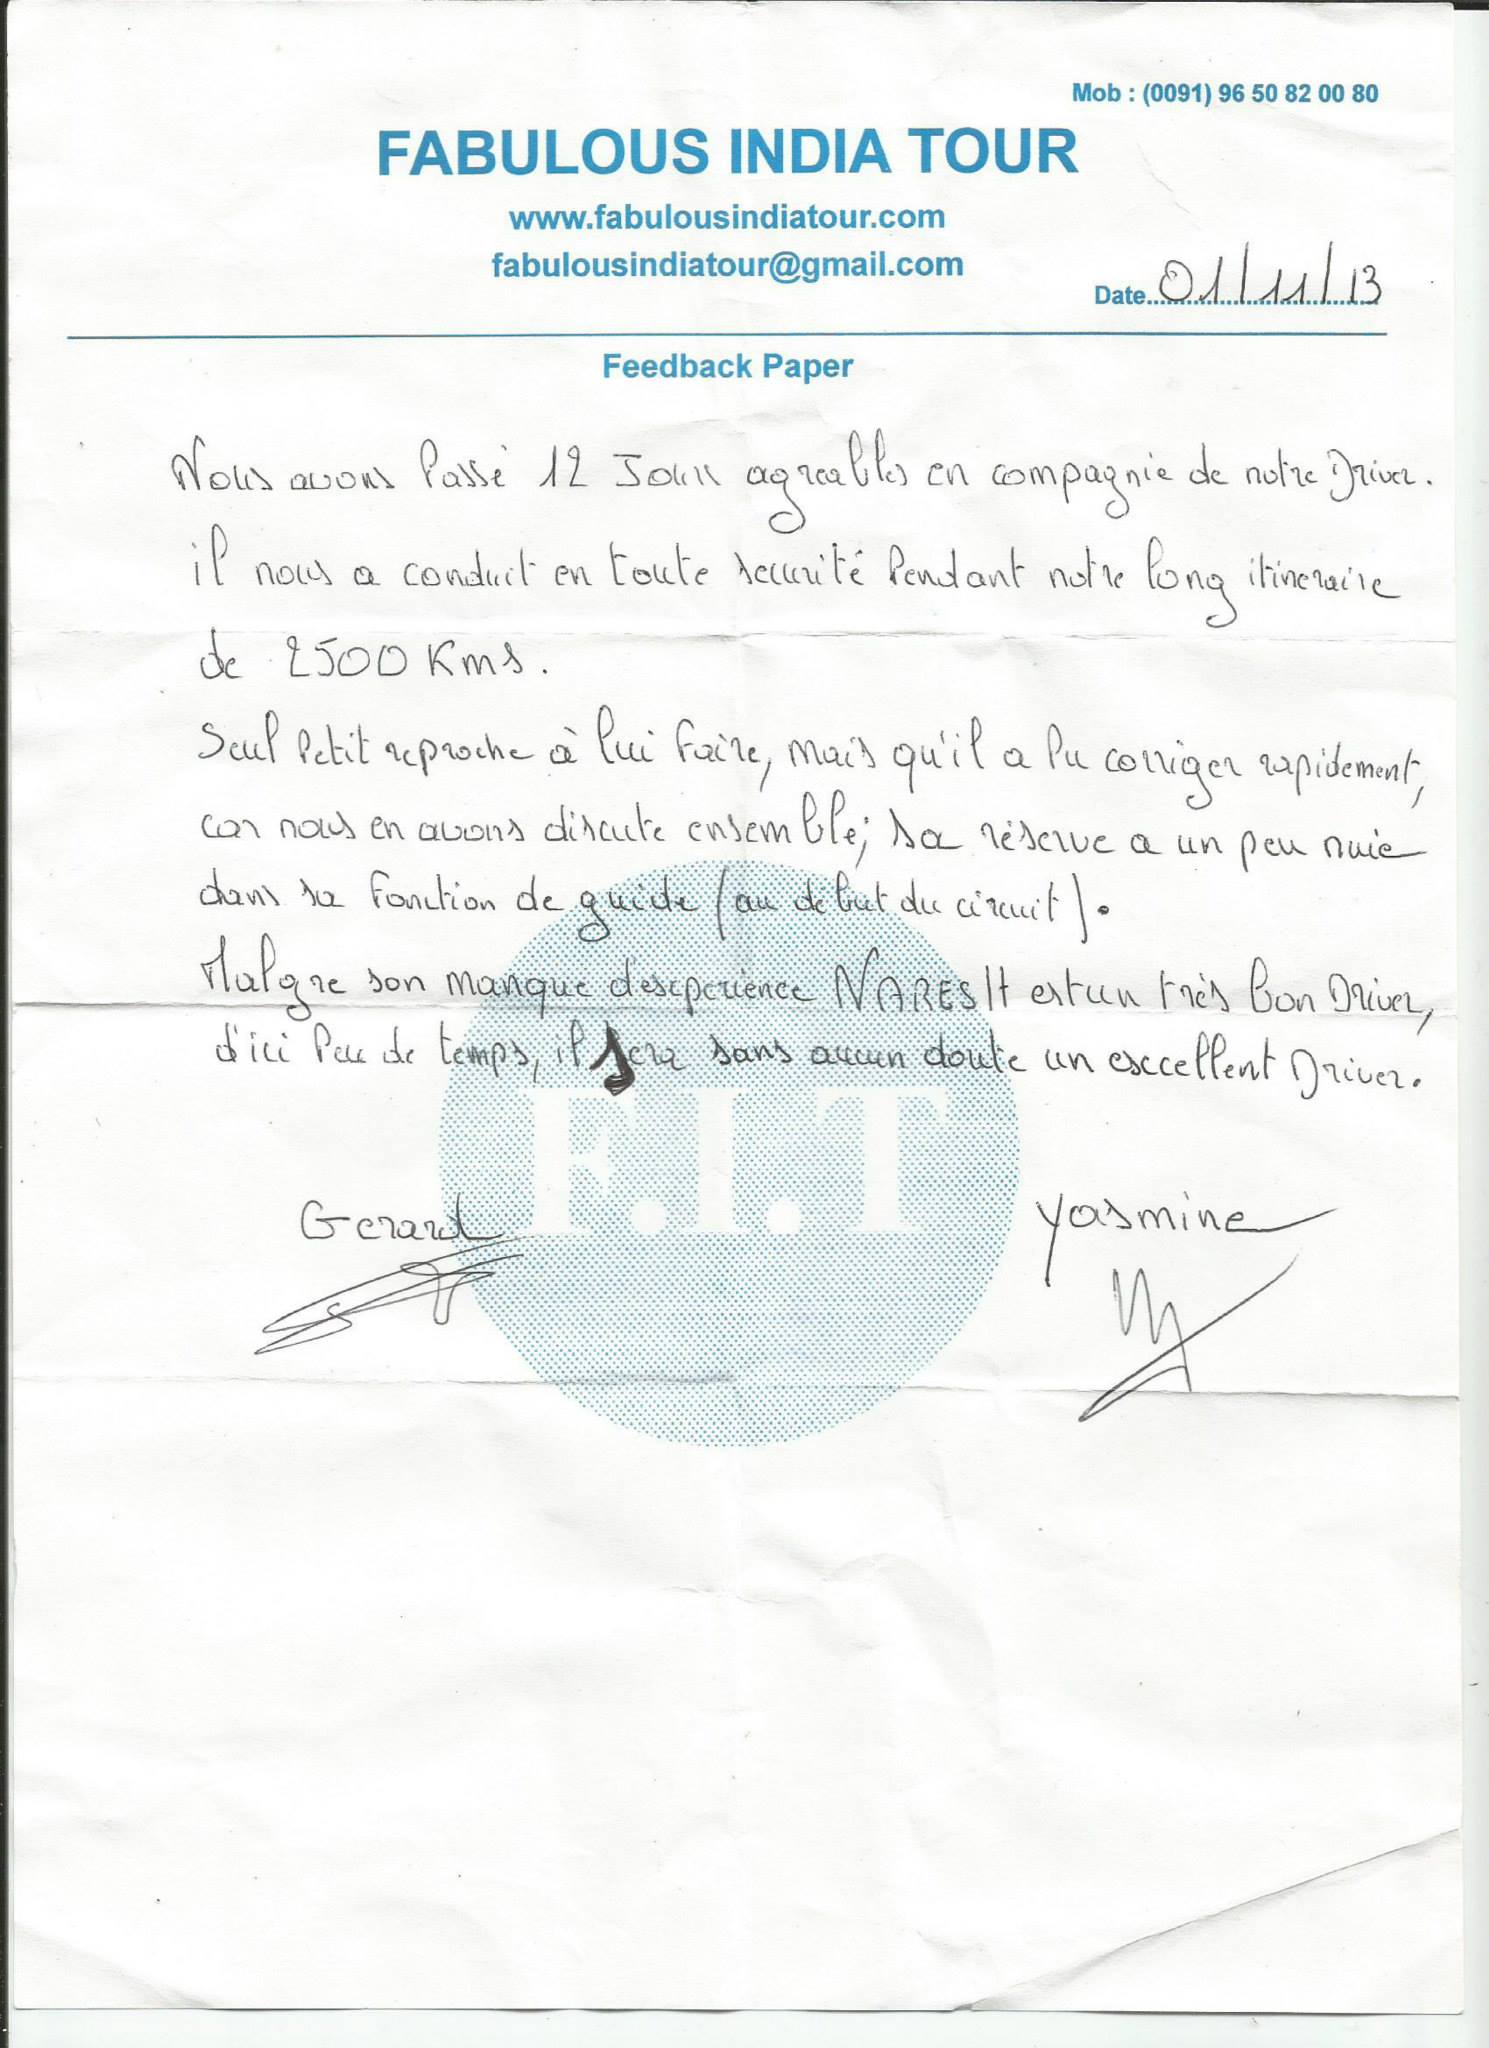 Mob : (0091) 96 50 82 00 80
FABULOUS INDIA TOUR
www.fabulousindiatour.com
fabulousindiatour@gmail.com
Date 01/11/13
Feedback Paper
Nous avons passé 12 Jours agreables en compagnie de notre Driver.
il nous a conduit en toute securité pendant notre long itineraire
de 2500 Kms.
Seul petit reproche à lui faire, mais qu'il a pu corriger rapidement,
car nous en avons discute ensemble; sa réserve a un peu nuie
dans sa fonction de guide (au debut du circuit).
Malgre son manque d'experience NARESH est un très bon Driver,
d'ici peu de temps, il sera sans aucun doute un excellent Driver.
F.I.T
Gerard
Yasmine